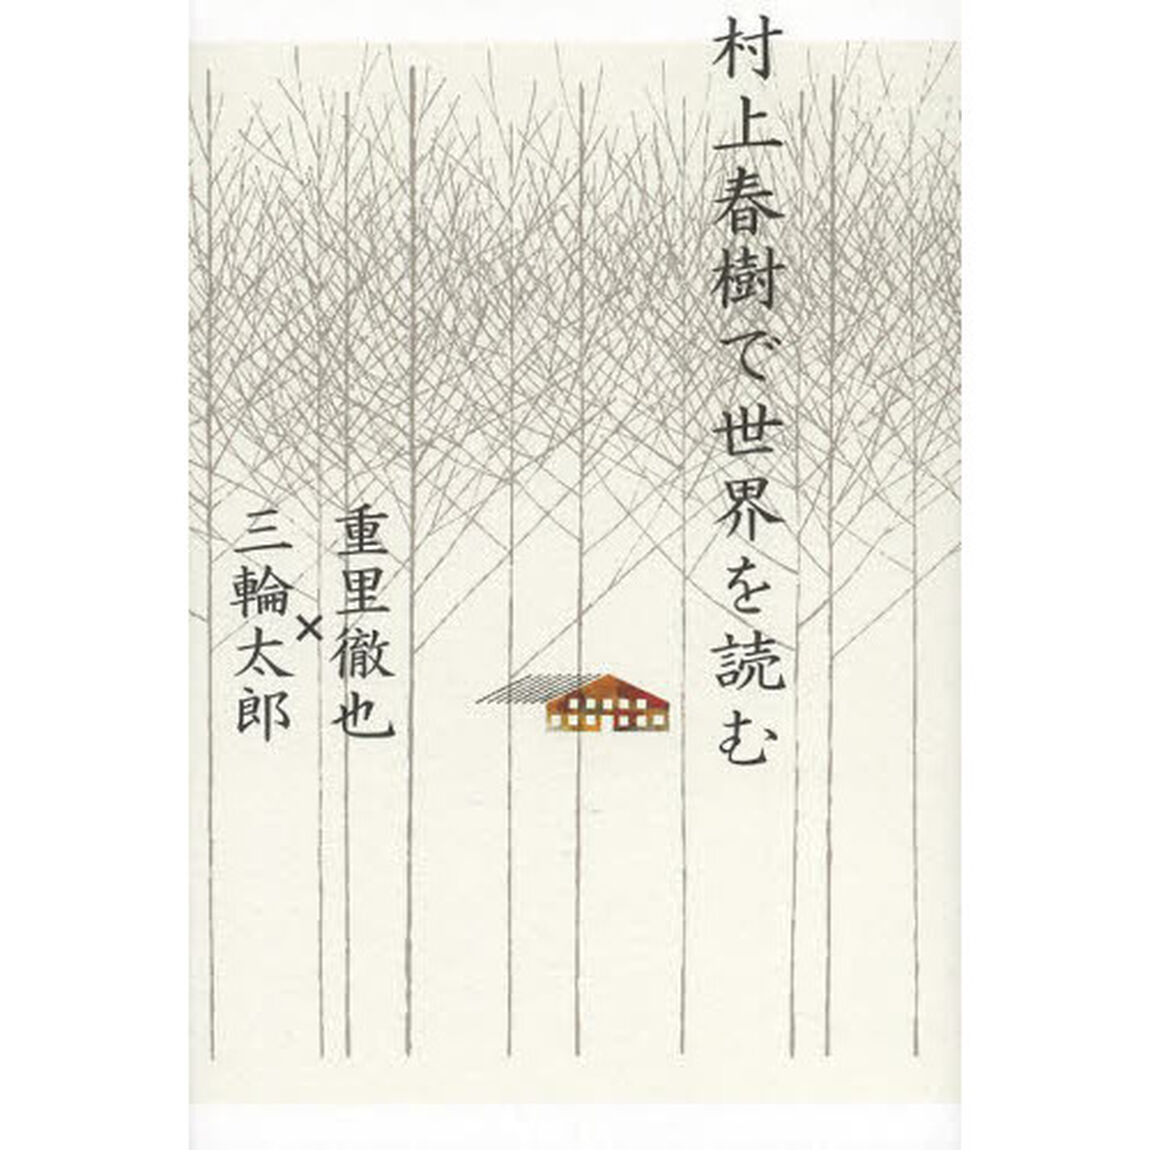 村上春樹で世界を読む
重里徹也
×
三輪太郎